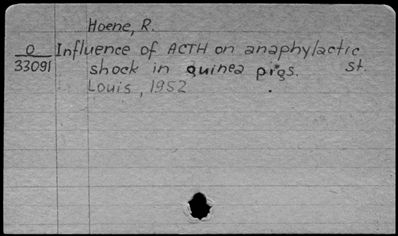 Hoene, R.
O Influence of ACTH on anaphylactic
33091 shock in guinea pigs. St.
Louis, 1952.